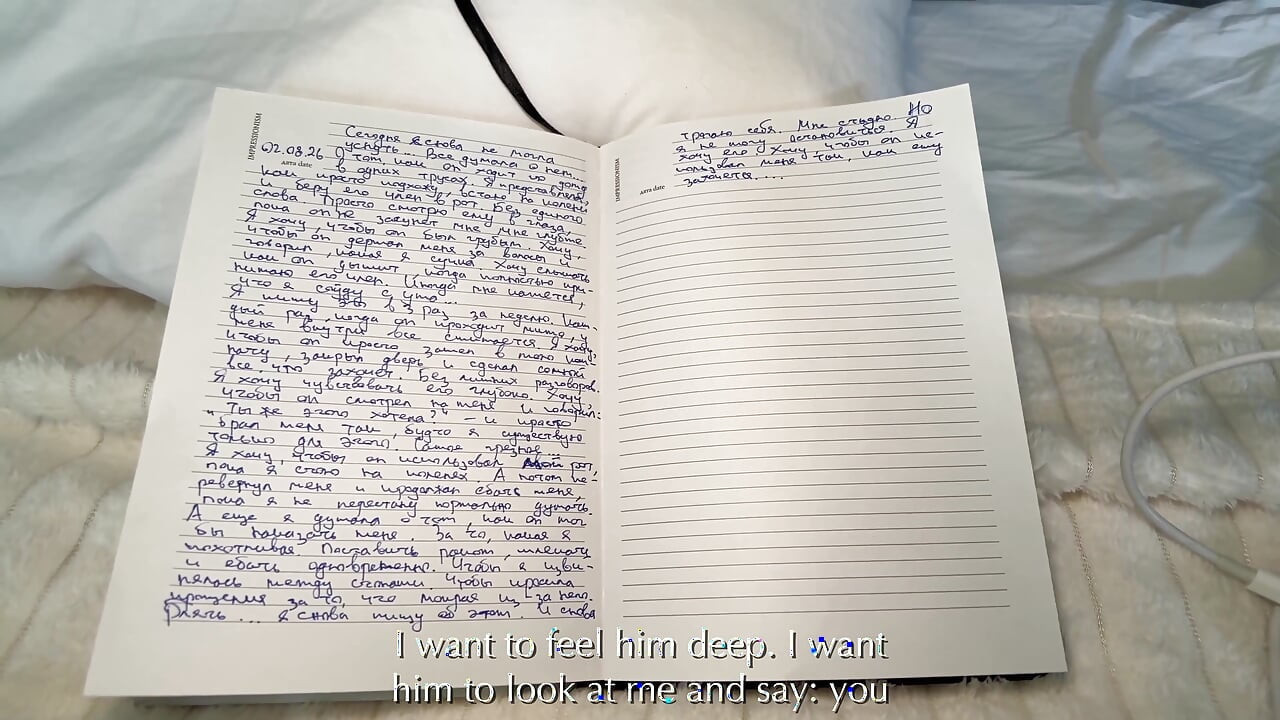 IMPRESSIONISM
дата date
02.08.26
Сегодня я снова не могла
уснуть. Все думала о нем.
О том, как он ходит по дому
в одних трусах. Я представляла,
как просто подхожу, встаю на колени
и беру его член в рот. Без единого
слова. Просто смотрю ему в глаза,
пока он не засунет мне глубже.
Я хочу, чтобы он был грубым. Хочу,
чтобы он держал меня за волосы и
говорил, какая я сучка. Хочу слышать
как он дышит, когда полностью при-
нимаю его член. Иногда мне кажется,
что я сойду с ума...
Я пишу это в 3 раз за неделю. Каж-
дый раз, когда он проходит мимо, у
меня внутри все сжимается. Я хочу,
чтобы он просто зашел в мою ком-
нату, закрыл дверь и сделал со мной
все, что захочет. Без лишних разговоров.
Я хочу чувствовать его глубоко. Хочу,
чтобы он смотрел на меня и говорил:
"Ты же этого хотела?" - и просто
брал меня так, будто я существую
только для этого. Самое грязное...
Я хочу, чтобы он использовал мой рот,
пока я стою на коленях. А потом пе-
ревернул меня и продолжал ебать меня,
пока я не перестану нормально думать.
А еще я думала о том, как он мог
бы наказать меня. За то, какая я
похотливая. Поставить раком, шлепать
и ебать одновременно. Чтобы я изви-
нялась между стонами. Чтобы просила
прощения за то, что мокрая из-за него.
Блять... я снова пишу об этом. И снова
IMPRESSIONISM
дата date
трогаю себя. Мне стыдно. Но
я не могу остановиться. Я
хочу его. Хочу, чтобы он ис-
пользовал меня так, как ему
захочется....
I want to feel him deep. I want
him to look at me and say: you